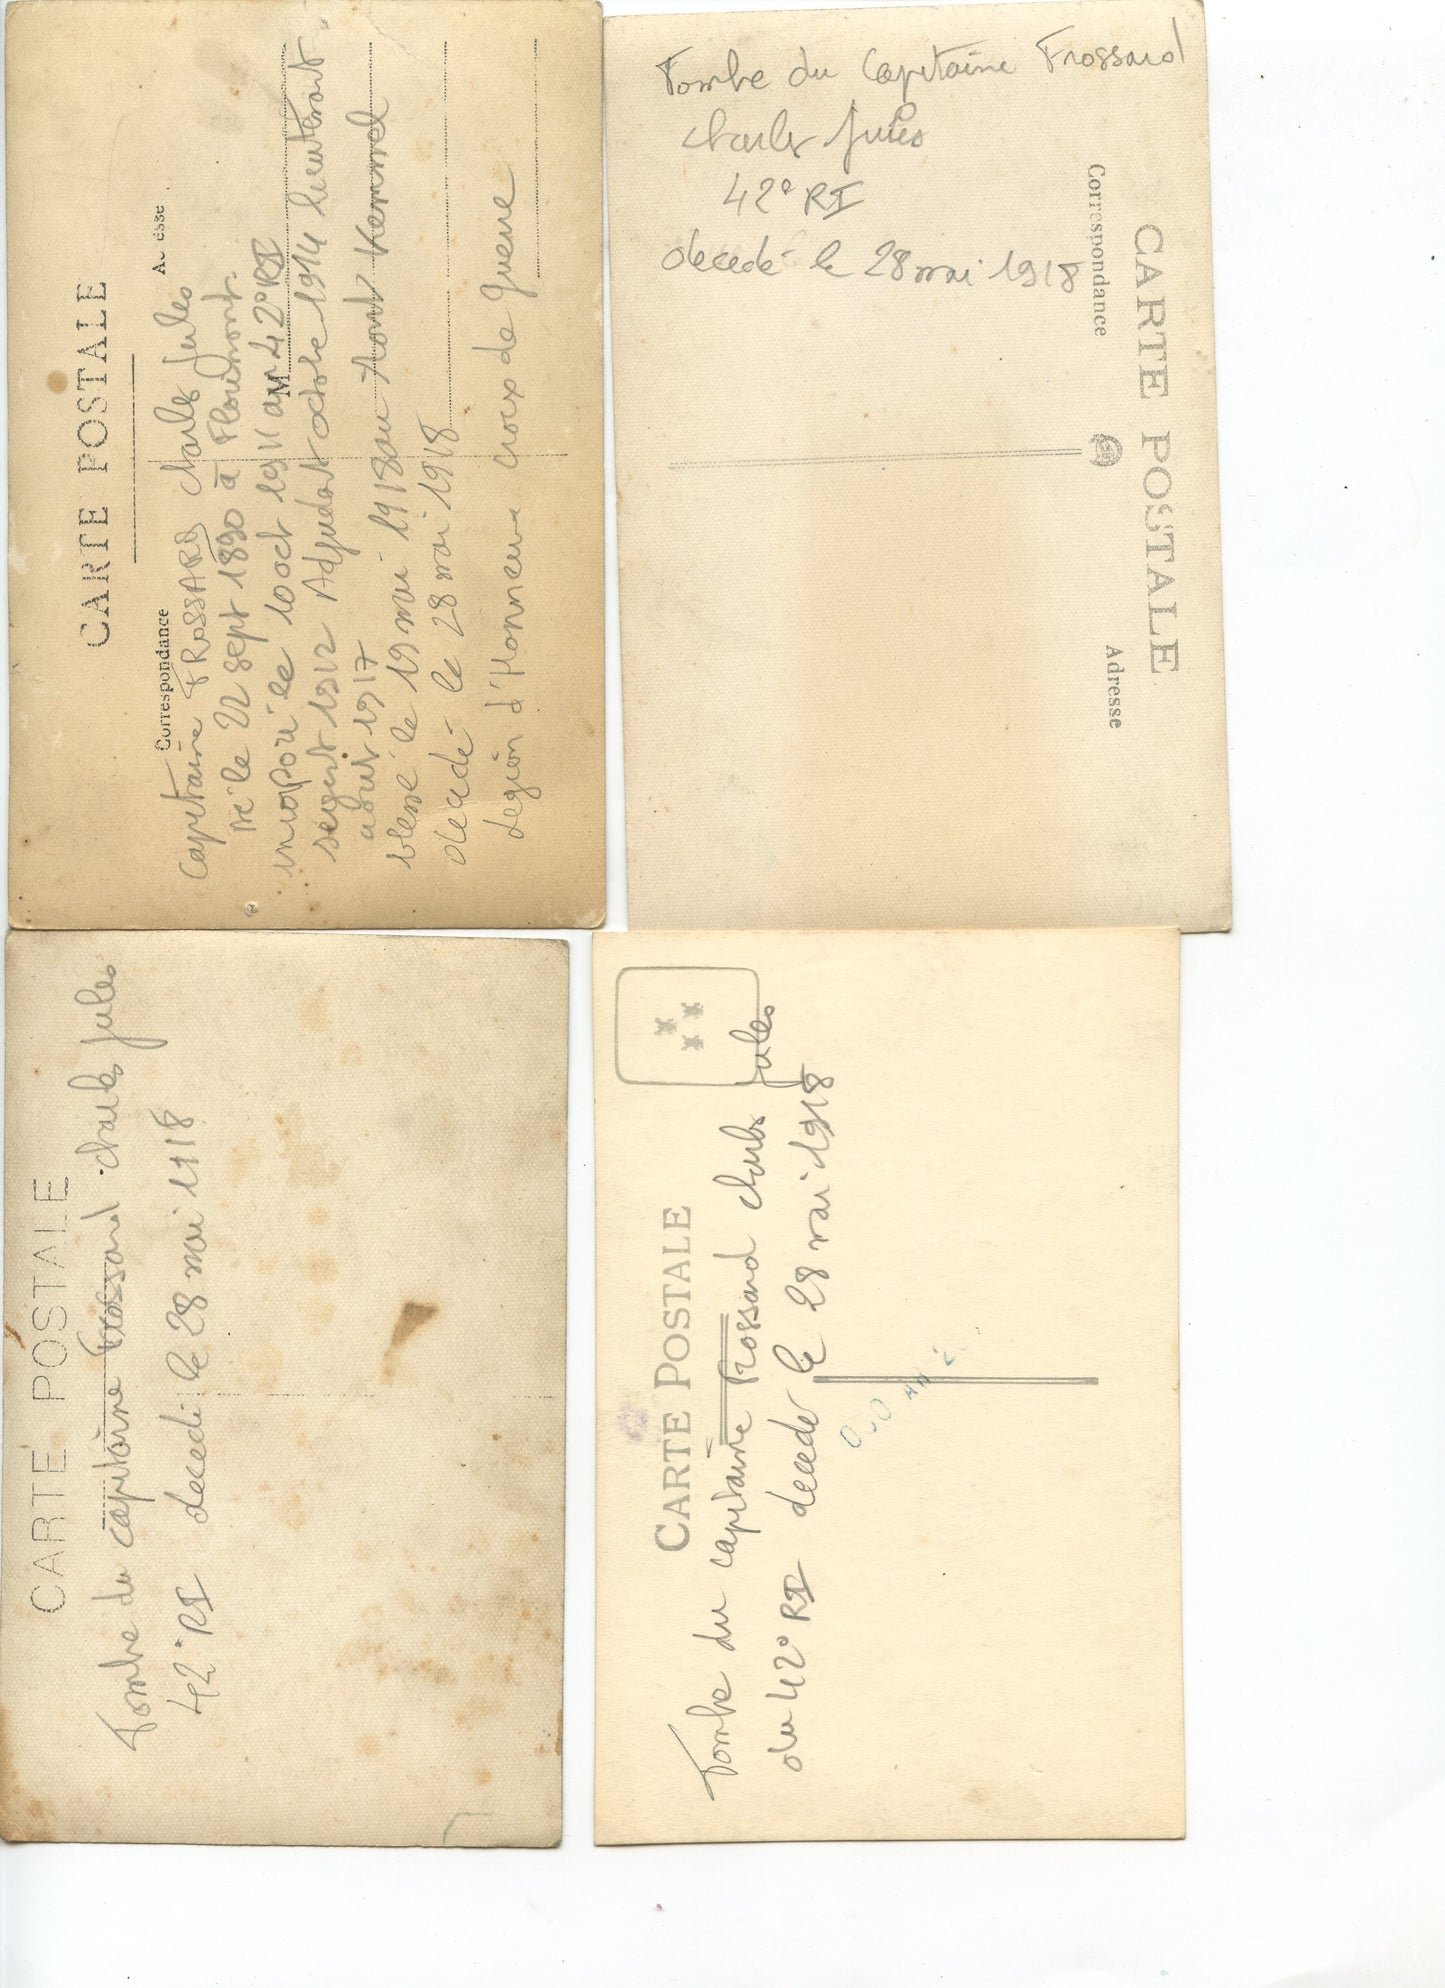 CARTE POSTALE
Correspondance
Capitaine FROSSARD Charles Jules
Né le 22 sept 1890 à Florimont
incorporé le 10 oct 1911 au 42° RI
M
sergent 1912 Adjudant octobre 1914 lieutenant
aout 1917
blessé le 19 mai 1918 au Mont Kemmel
decede le 28 mai 1918
Legion d'Honneur Croix de Guerre
Tombe du Capitaine Frossard
Charles Jules
42° RI
decede le 28 mai 1918
CARTE POSTALE
Correspondance
Adresse
CARTE POSTALE
Tombe du capitaine Frossard Charles Jules
42° RI decedé le 28 mai 1918
CARTE POSTALE
Tombe du capitaine Frossard Charles Jules
du 42° RI decede le 28 mai 1918